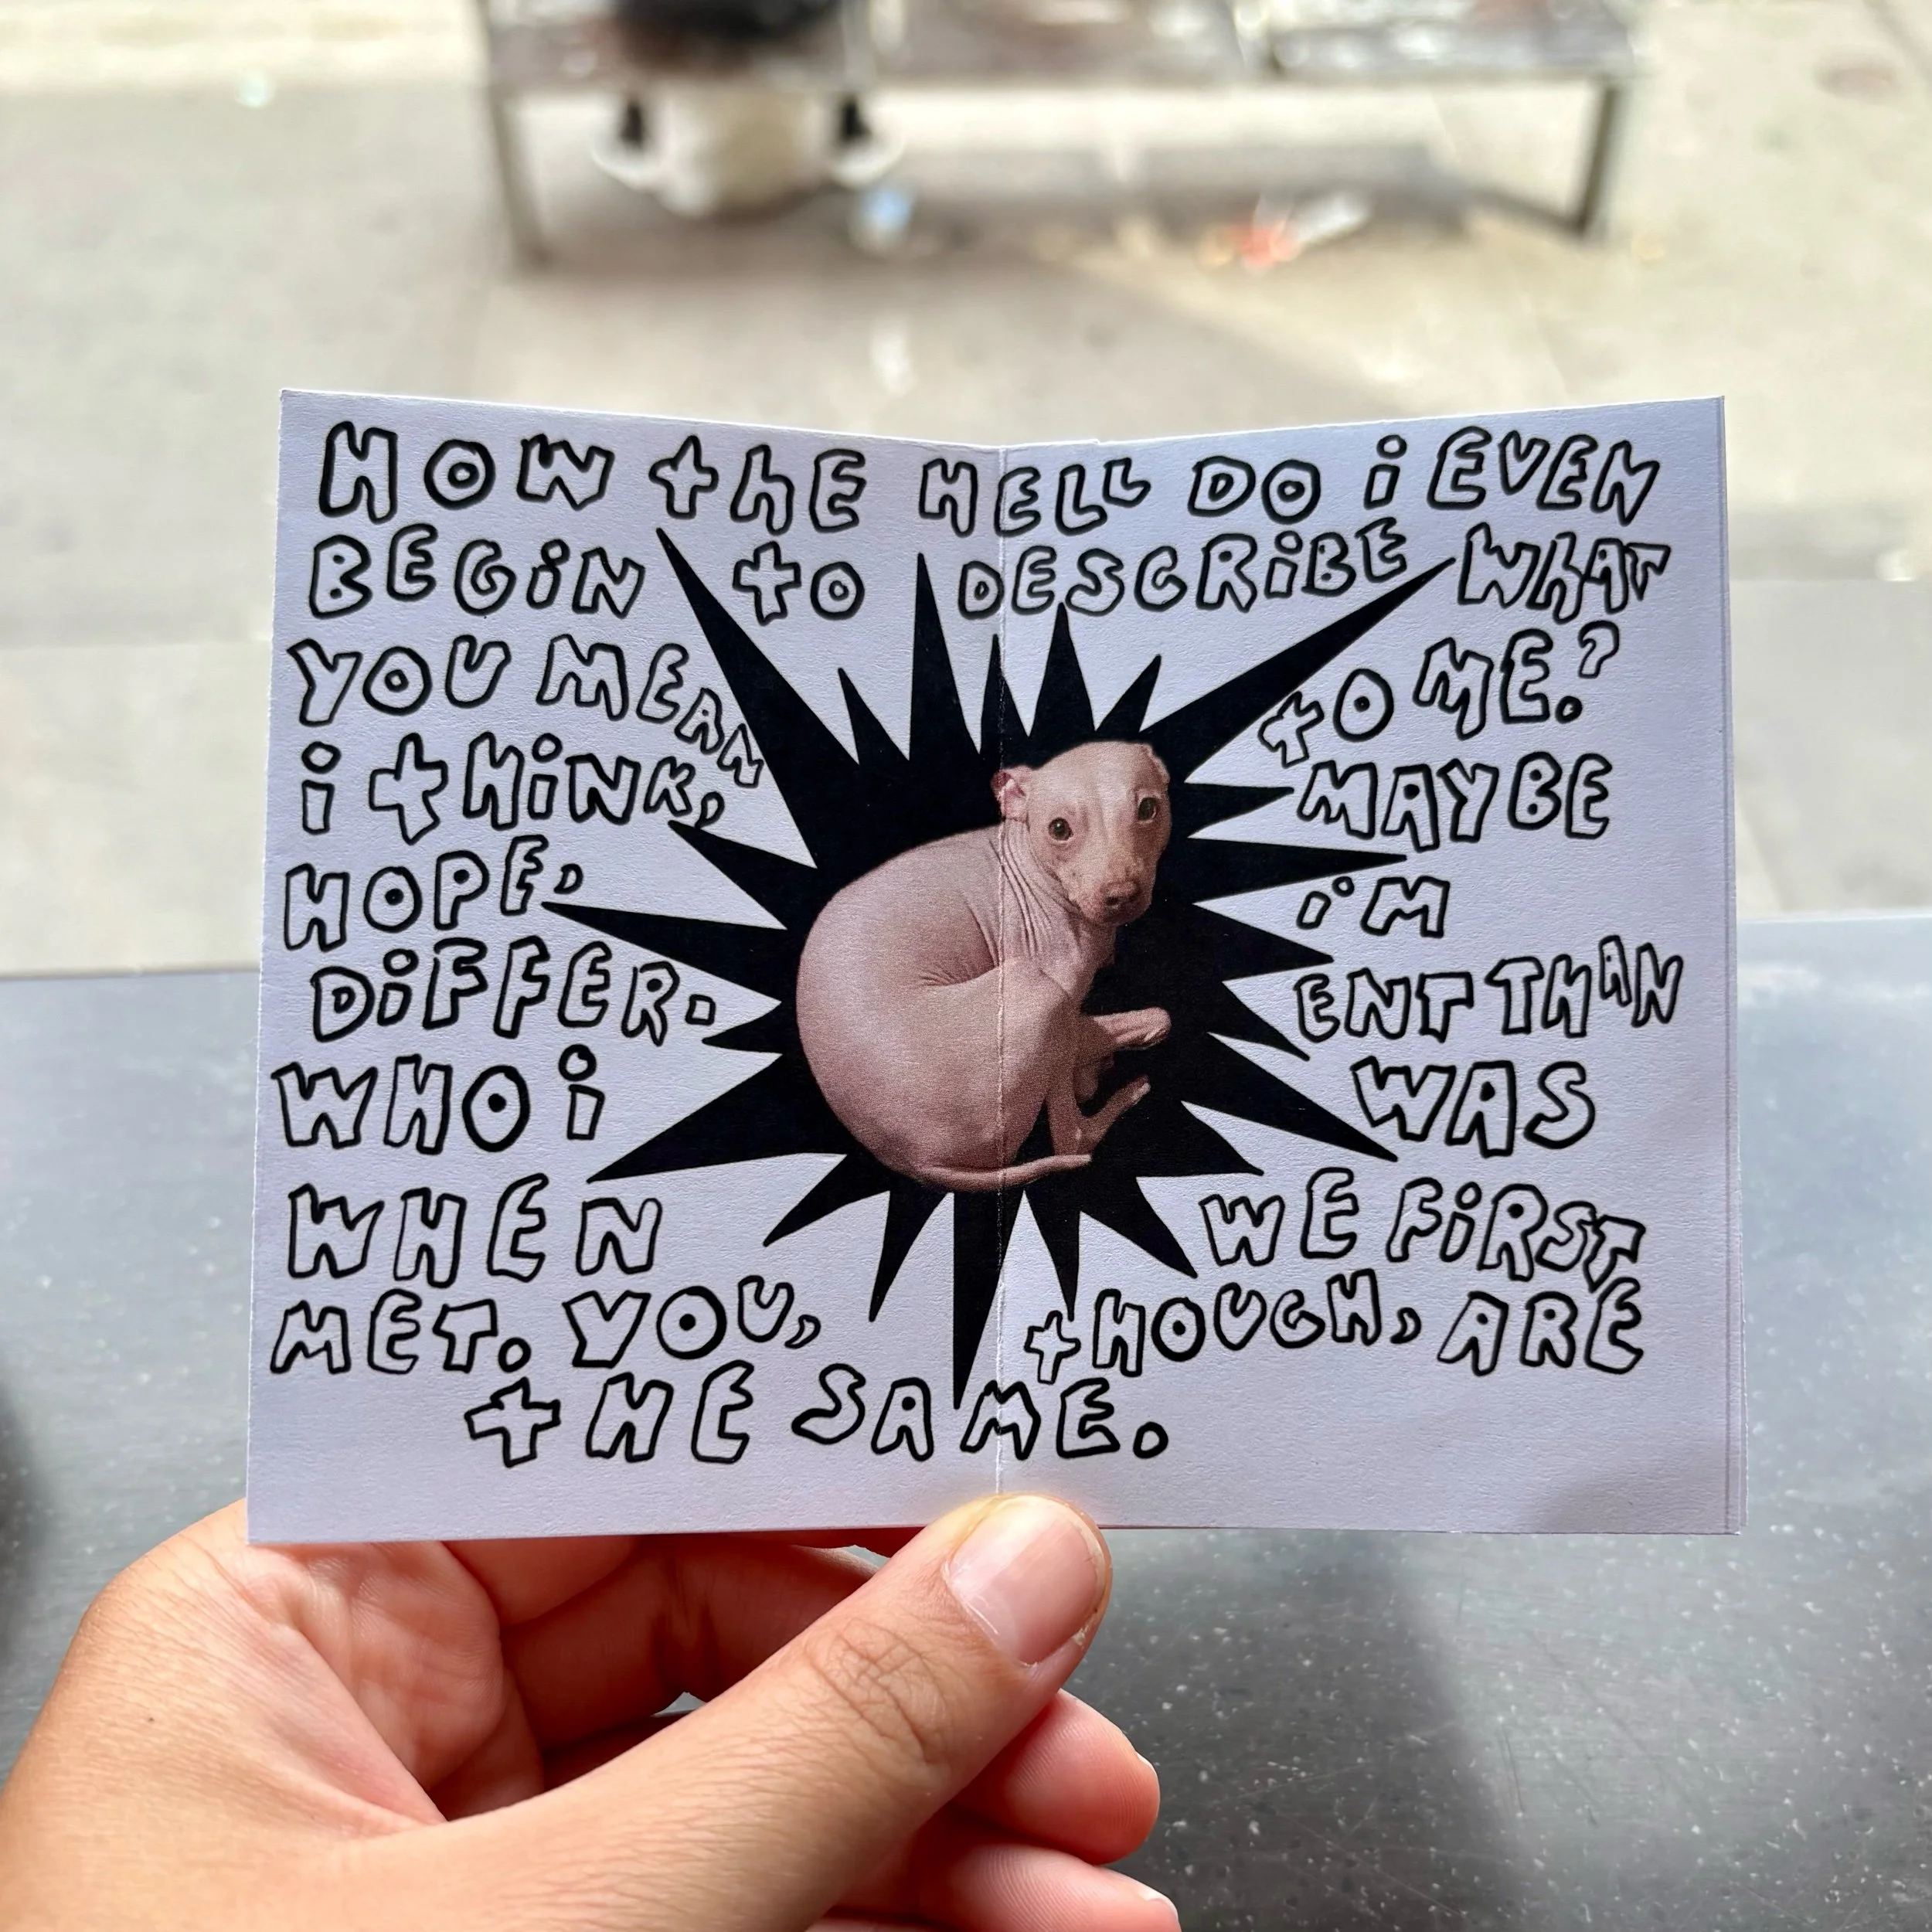 HOW THE HELL DO I EVEN
BEGIN TO DESCRIBE WHAT
YOU MEAN TO ME?
I THINK, MAYBE
HOPE, I'M
DIFFER- ENT THAN
WHO I WAS
WHEN WE FIRST
MET. YOU, THOUGH, ARE
THE SAME.